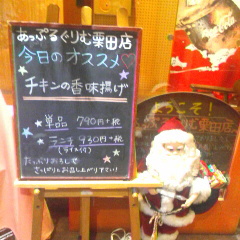 あっぷるぐりむ栗田店
今日のオススメ♡
チキンの香味揚げ
☆単品 790円+税
☆ランチ 930円+税
(ライス付)
たっぷりおろしで
さっぱりとお召し上がり下さい!
ようこそ!